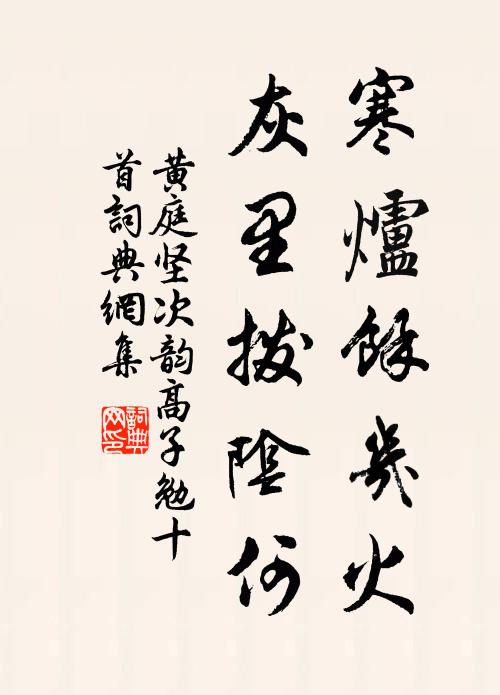 寒爐餘幾火
灰里撥陰何
黄庭坚次韵高子勉十
首詞典網集
詞典
网印